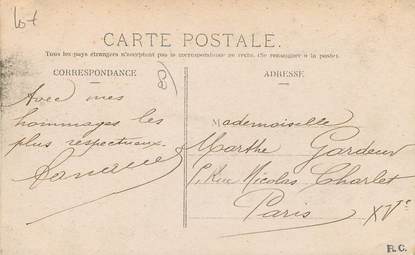 CARTE POSTALE.
Tous les pays étrangers n'acceptent pas la correspondance au recto. (Se renseigner à la poste).
CORRESPONDANCE
Avec mes
hommages les
plus respectueux.
ADRESSE
Mademoiselle
Marthe Gardeur
Rue Nicolas Charlet
Paris XVe
R.C.